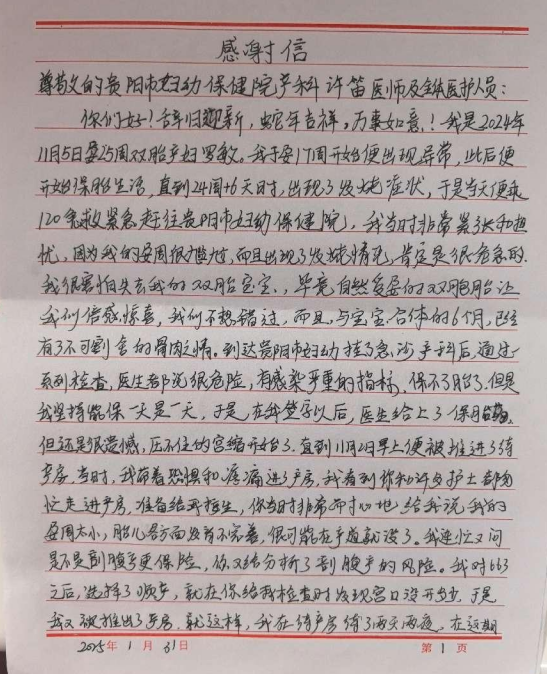 感谢信
尊敬的贵阳市妇幼保健院产科许笛医师及全体医护人员：
你们好！辞旧迎新，蛇年吉祥，万事如意！我是2024年
11月5日孕25周双胎产妇罗敏。我于孕17周开始便出现异常，此后便
开始保胎生活，直到24周+6天时，出现了发烧症状，于是当天便乘
120急救紧急赶往贵阳市妇幼保健院，我当时非常紧张和担
忧，因为我的孕周很尴尬，而且出现了发烧情况，肯定是很危急的.
我很害怕失去我的双胎宝宝.，毕竟自然受孕的双胞胎让
我们倍感惊喜，我们不想错过，而且，与宝宝合体的6个月，已经
有了不可割舍的骨肉之情。到达贵阳市妇幼挂了急诊产科后，通过一
系列检查，医生都说很危险，有感染严重的指标，保不了胎了.但是
我坚持能保一天是一天，于是在我签字以后，医生给上了保胎药.
但还是很遗憾，压不住的宫缩开始了.直到11月2日早上便被推进了待
产房.当时，我带着恐惧和疼痛进了产房，我看到你和许多护士都匆
忙走进产房，准备给我接生，你当时非常耐心地给我说我的
孕周太小，胎儿各方面发育不完善，很可能在产道就没了。我连忙又问
是不是剖腹产更保险，你又给分析了剖腹产的风险。我对比
之后，选择了顺产，就在你给我检查时发现宫口没开多少.于是
我又被推出了产房.就这样，我在待产房待了两天两夜，在这期
2025年1月31日 第1页